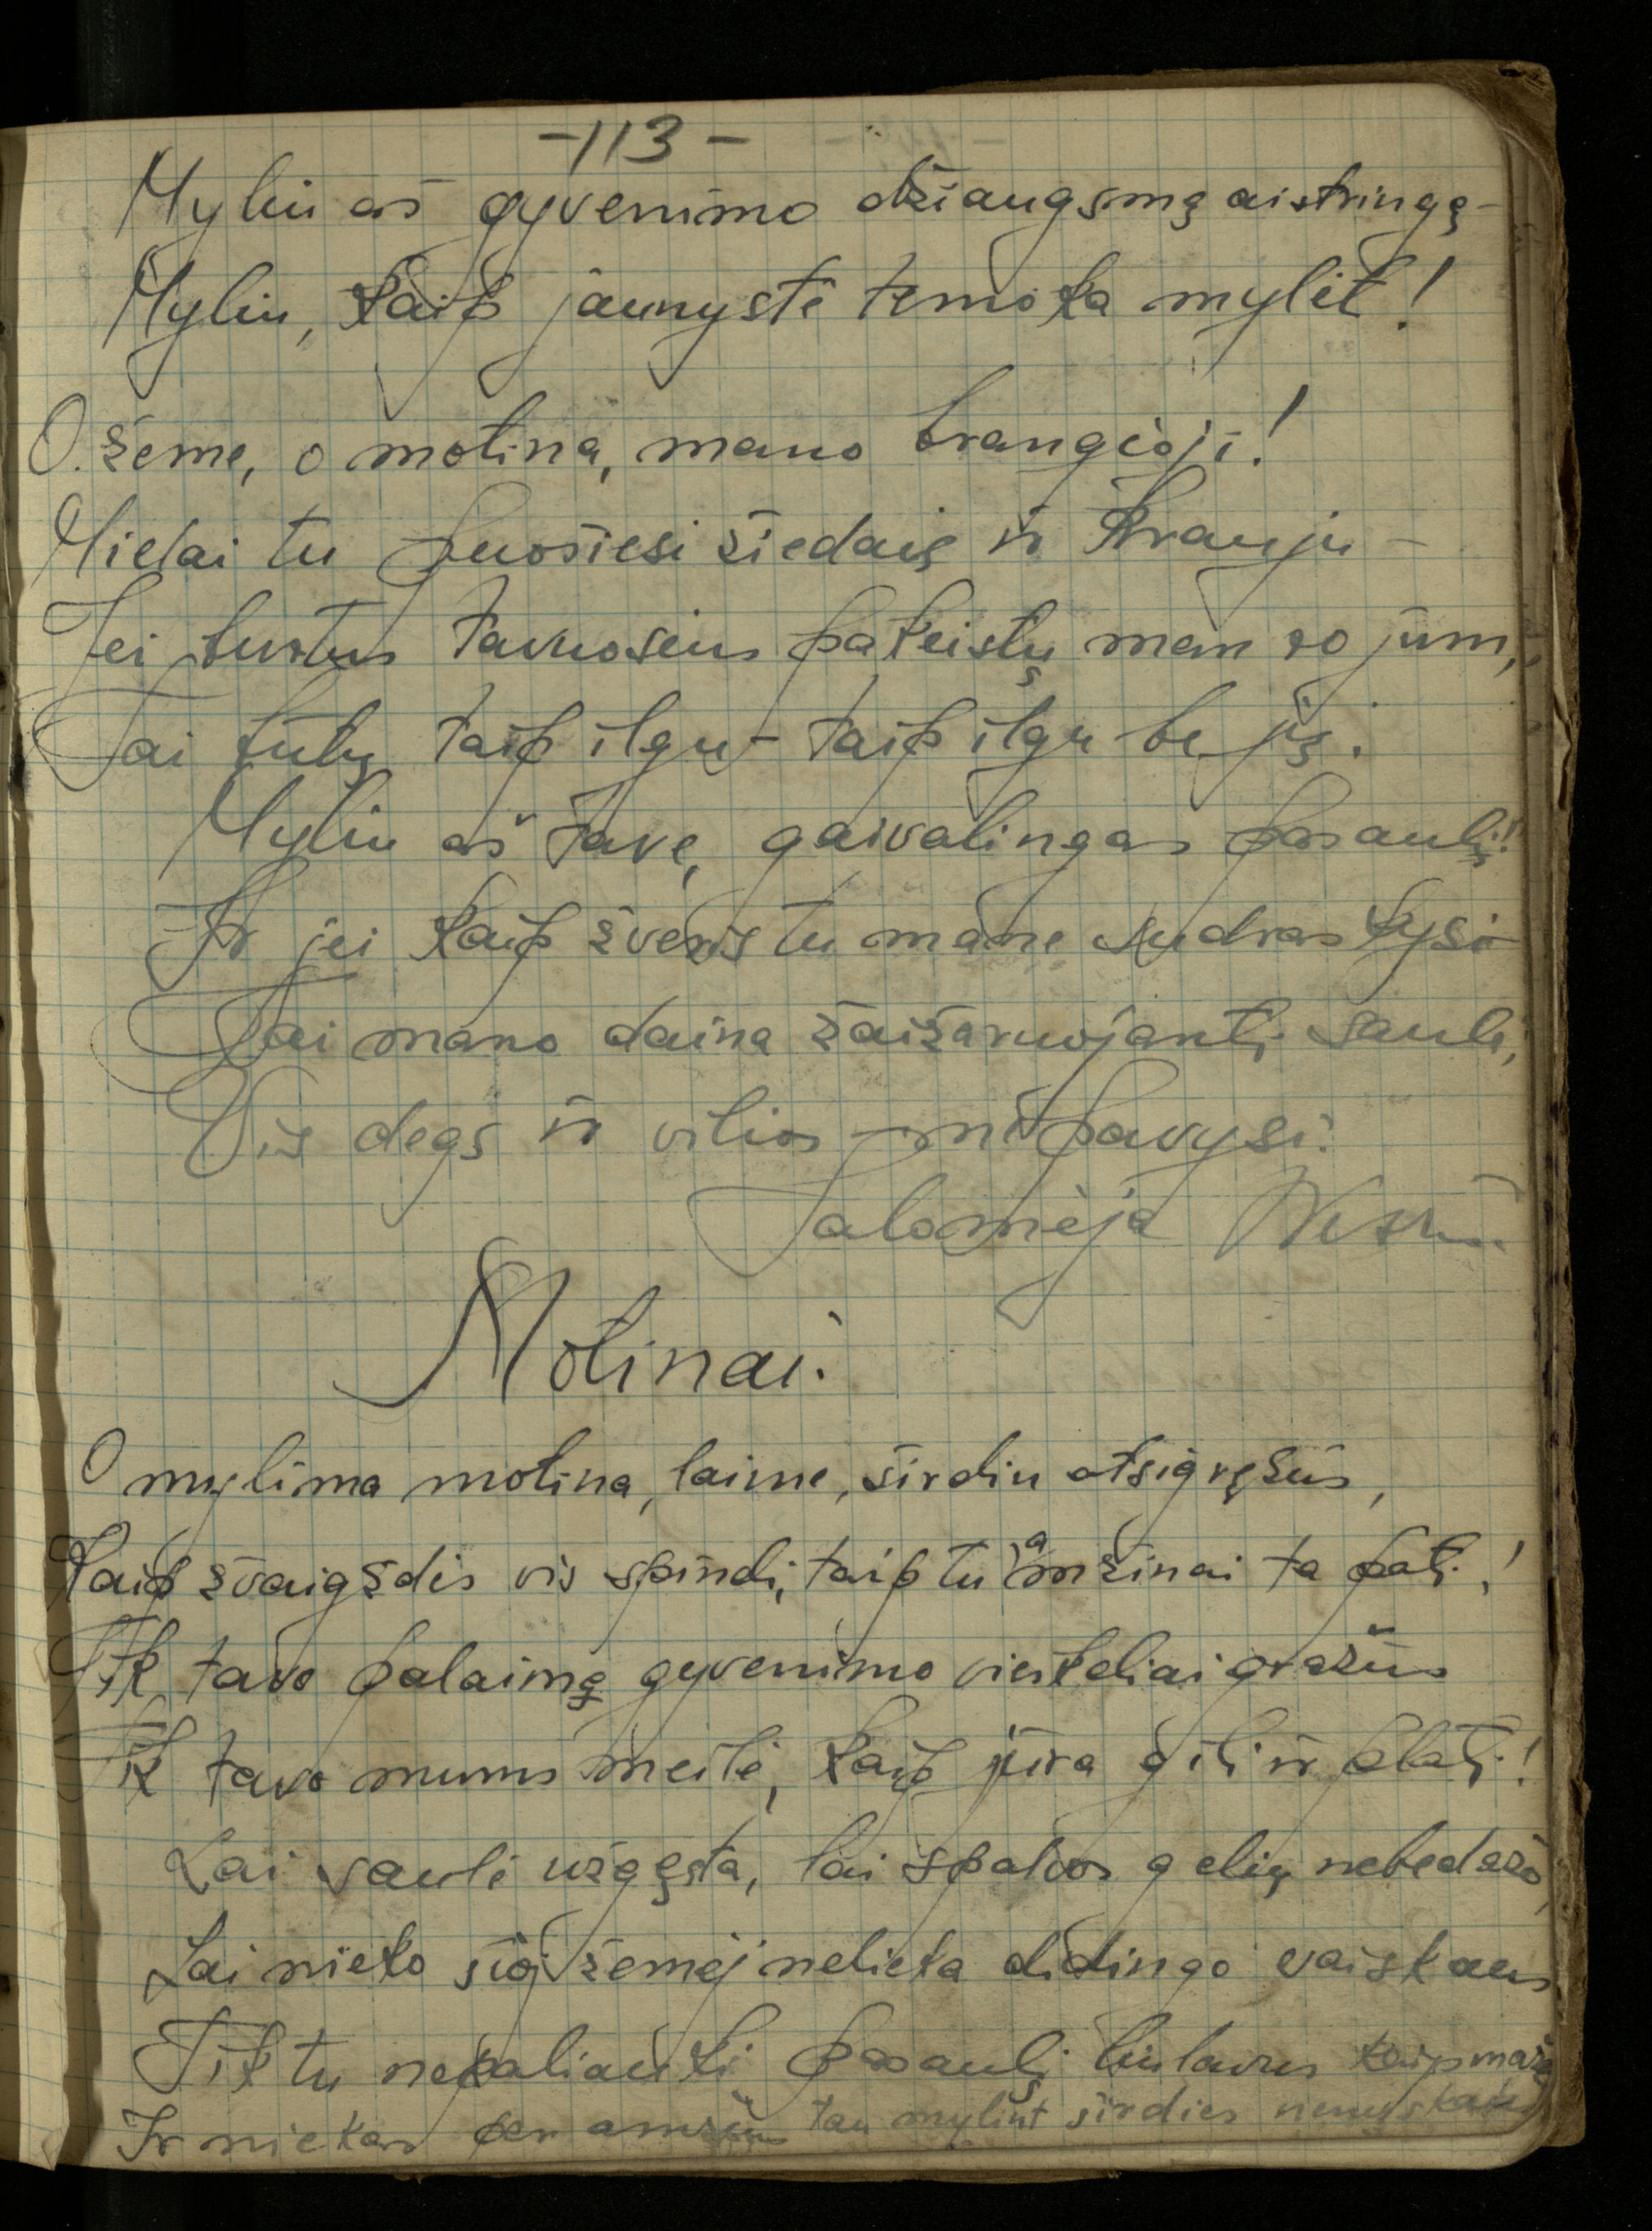 -113-
Myliu aš gyvenimo džiaugsmą aistringą-
Myliu, kaip jaunystė temoka mylėt!
O žeme, o motina, mano brangioji!
Mielai tu puošiesi žiedais ir krauju -
Jei turtus tavuosius pakeistų man rojum,
Tai būtų taip ilgu - taip ilgu be jų.
Myliu aš tave, gaivalingas pasauli!
Ir jei kaip žvėris tu mane sudraskysi
Tai mano daina žaižaruojanti saule,
Vis degs ir vilios - ir pavysi.
Salomėja Nėris.
Motinai.
O mylima motina, laime, širdin atsigręžus,
Kaip žvaigždės vis spindi, taip tu amžinai ta pati!
Tik tavo palaimą gyvenimo vieškeliai gražūs
Tik tavo mums meilė, kaip jūra gili ir plati!
Lai saulė užgęsta, lai spalvos gėlių nebedažo,
Lai nieko šioj žemėj nelieka didingo vaiskaus
Tik tu nepaliauki pasaulį kaip maža
Ir niekas per amžius tau mylint širdies